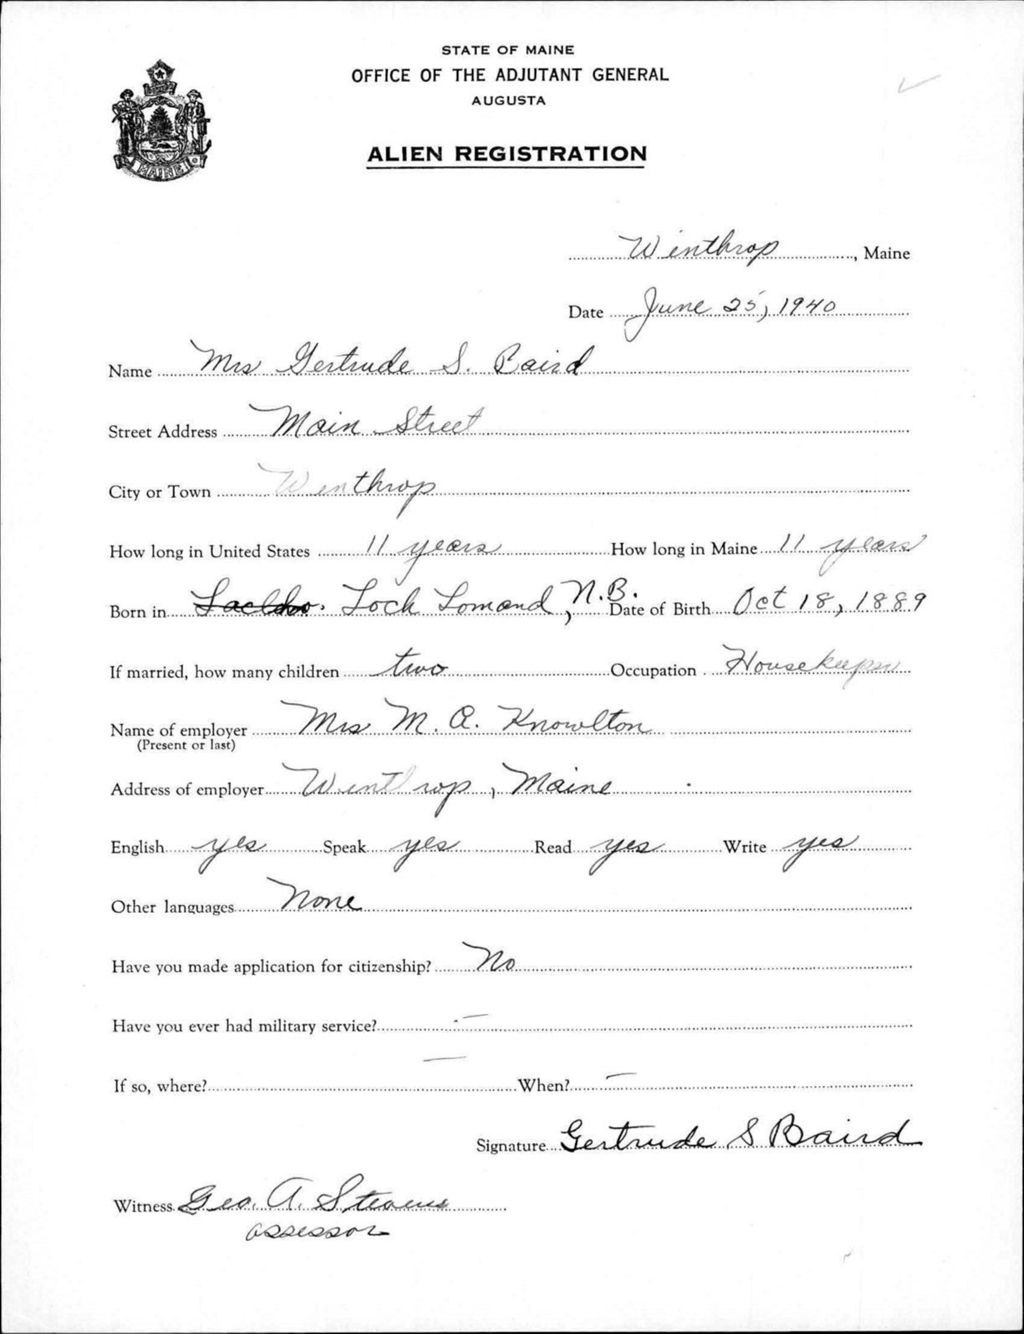 STATE OF MAINE
OFFICE OF THE ADJUTANT GENERAL
AUGUSTA
ALIEN REGISTRATION
MAINE
Winthrop, Maine
Date June 25, 1940
Name Mrs Gertrude S. Baird
Street Address Main Street
City or Town Winthrop
How long in United States 11 years How long in Maine 11 years
Born in Loch Lomond, N.B. Date of Birth Oct 18, 1889
If married, how many children two Occupation Housekeeper
Name of employer Mrs M. A. Knowlton
(Present or last)
Address of employer Winthrop, Maine
English yes Speak yes Read yes Write yes
Other languages None
Have you made application for citizenship? No
Have you ever had military service? —
If so, where? — When? —
Signature Gertrude S Baird
Witness Geo. A. Stevens
assessor